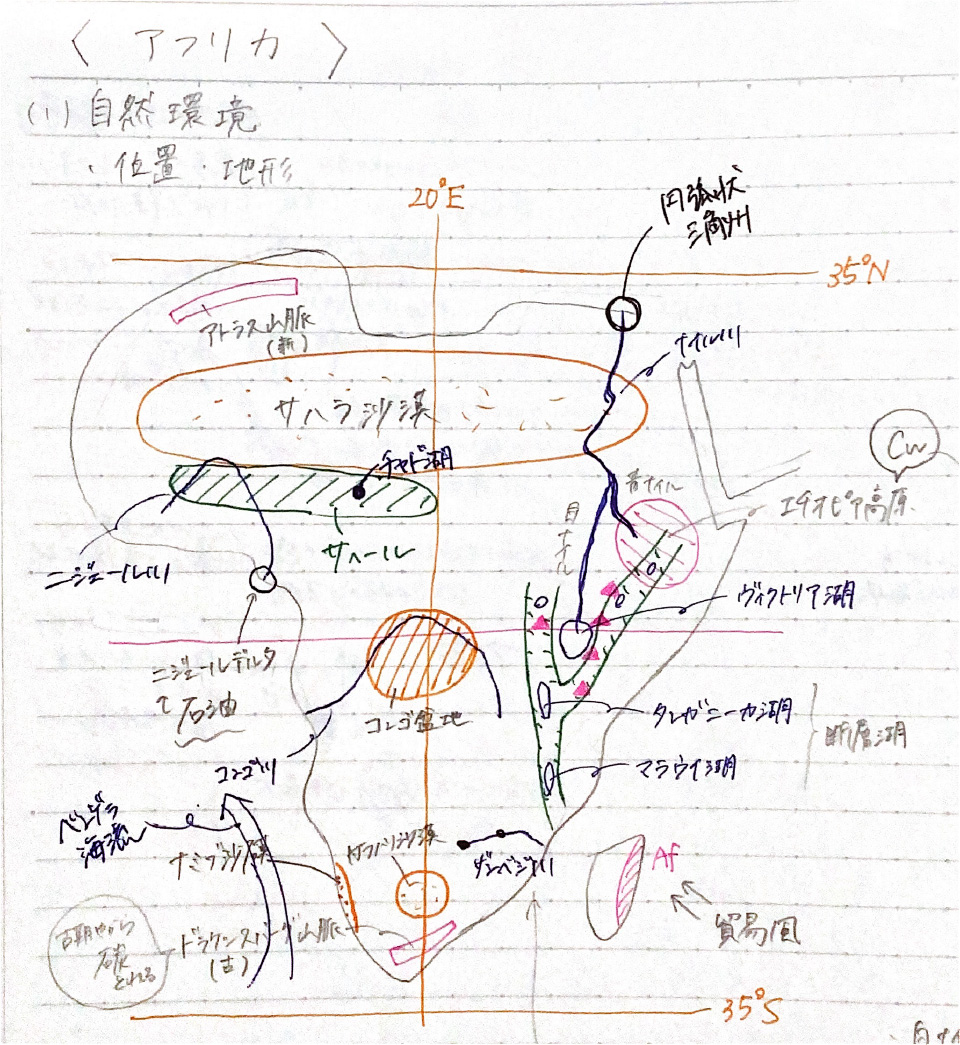 〈 アフリカ 〉
(1) 自然環境
・位置・地形
20°E
円弧状
三角州
35°N
アトラス山脈
(新)
ナイル川
サハラ沙漠
Cw
チャド湖
青ナイル
エチオピア高原
白ナイル
サヘール
ニジェール川
ヴィクトリア湖
ニジェールデルタ
石油
コンゴ盆地
タンガニーカ湖
断層湖
マラウイ湖
コンゴ川
ベンゲラ
海流
カラハリ沙漠
ナミブ沙漠
ザンベジ川
Af
貿易風
古期やから
石炭
とれる
ドラケンスバーグ山脈
(古)
35°S